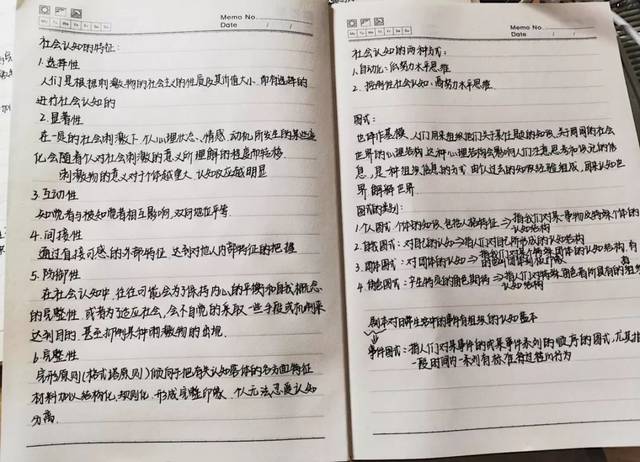 Memo No.
Mo Tu We Th Fr Sa Su
Date / /
社会认知的特征:
1.选择性
人们是根据刺激物的社会主义的性质及其价值大小,而有选择的
进行社会认知的
2.显著性
在一定的社会刺激下,个人心理状态、情感、动机所发生的某些变
化会随着个人对社会刺激的意义所理解的程度而转移.
刺激物的意义对于个体越重大,认知反应越明显
3.互动性
知觉者与被知觉者相互影响,双方地位平等.
4.间接性
通过直接可感的外部特征,达到对他人内部特征的把握
5.防御性
在社会认知中,往往可能会为了保持内心的平衡和自我概念
的完整性,或者为了适应社会,会不自觉的采取一些手段或机制来
达到目的.甚至抑制某种刺激物的出现.
6.完整性
完形原则(格式塔原则)倾向于把有关认知客体的各方面特征
材料加以结构化、规则化.形成完整印象.个人无法忍受认知
分离.
Memo No.
Mo Tu We Th Fr Sa Su
Date / /
社会认知的两种方式:
1.自动化:低努力水平思维
2.控制性社会认知:高努力水平思维
图式:
也译作基模.人们用来组织他们关于某主题的知识、关于周围的社会
世界的心理结构.这种心理结构会影响人们注意思考和
息,是一种组织信息的方式.由个人过去的知识经验组成,用来认知世
界、解释世界.
图式的类别:
1.个人图式:个体的知识,包括人格特征→指我们对某一事物或特殊个体的
认知结构
2.自我图式:对自己的认知→指人们对自己所形成的认知结构
3.团体图式:对团体的认知→指我们对某个特殊团体的认知结构,有
4.角色图式:产生特定的角色期待→指人们对特殊角色者所具有的
认知结构
剧本:对日常生活中的事件有组织的认知基本
事件图式:指人们对某事件的或某事件系列的顺序的图式,尤其指
一段时间内一系列有标准有过程的行为